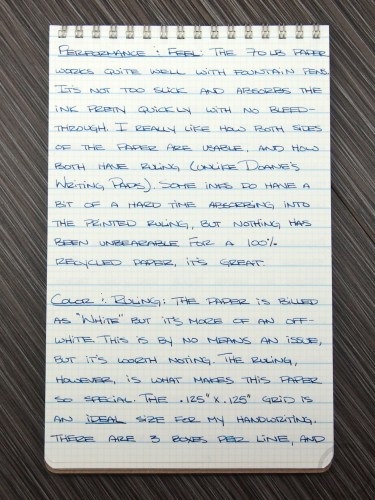 PERFORMANCE & FEEL: THE 70 LB PAPER
WORKS QUITE WELL WITH FOUNTAIN PENS.
IT'S NOT TOO SLICK AND ABSORBS THE
INK PRETTY QUICKLY WITH NO BLEED-
THROUGH. I REALLY LIKE HOW BOTH SIDES
OF THE PAPER ARE USABLE, AND HOW
BOTH HAVE RULING (UNLIKE DOANE'S
WRITING PADS). SOME INKS DO HAVE A
BIT OF A HARD TIME ABSORBING INTO
THE PRINTED RULING, BUT NOTHING HAS
BEEN UNBEARABLE FOR A 100%
RECYCLED PAPER, IT'S GREAT.
COLOR & RULING: THE PAPER IS BILLED
AS "WHITE" BUT IT'S MORE OF AN OFF-
WHITE THIS IS BY NO MEANS AN ISSUE,
BUT IT'S WORTH NOTING. THE RULING,
HOWEVER, IS WHAT MAKES THIS PAPER
SO SPECIAL. THE .125" X .125" GRID IS
AN IDEAL SIZE FOR MY HANDWRITING.
THERE ARE 3 BOXES PER LINE, AND